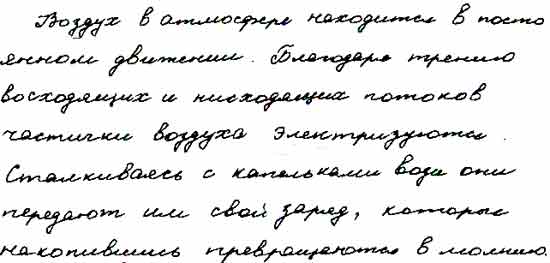 Воздух в атмосфере находится в посто
янном движении. Благодаря трению
восходящих и нисходящих потоков
частички воздуха электризуются.
Сталкиваясь с капельками воды они
передают им свой заряд, который
накопившись превращаются в молнию.